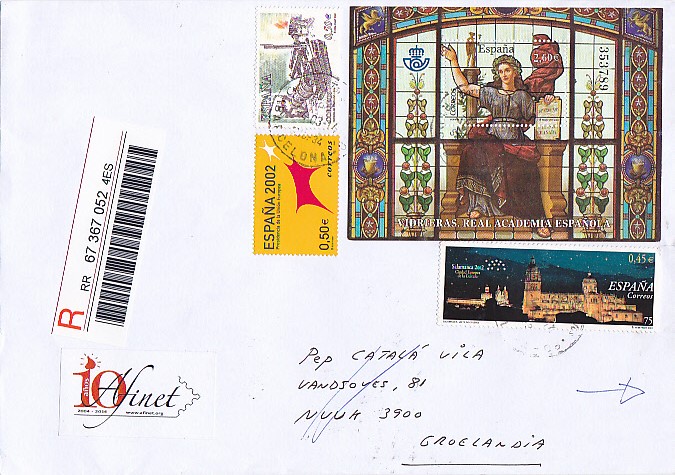 ESPAÑA
0,50€
España
2,60€
CORREOS
353789
VIDRIERAS. REAL ACADEMIA ESPAÑOLA
ESPAÑA 2002
correos
0.50€
R
RR 67 367 052 4ES
Salamanca 2002
Ciudad Europea
de la Cultura
0,45€
ESPAÑA
Correos
75
10 años
Afinet
2004 - 2014
www.afinet.org
Pep CATALÁ VILA
VANDSOYES, 81
NUUK 3900
GROELANDIA